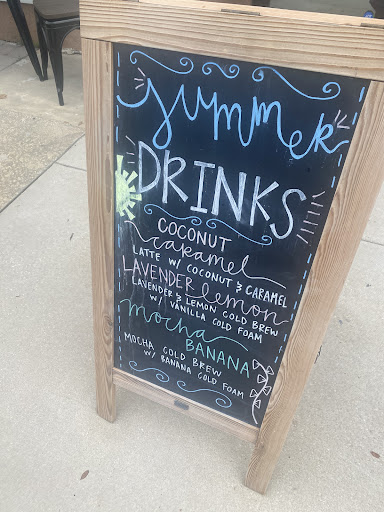 summer
DRINKS
COCONUT
caramel
LATTE W/ COCONUT & CARAMEL
LAVENDER lemon
LAVENDER & LEMON COLD BREW
W/ VANILLA COLD FOAM
mocha
BANANA
MOCHA COLD BREW
W/ BANANA COLD FOAM